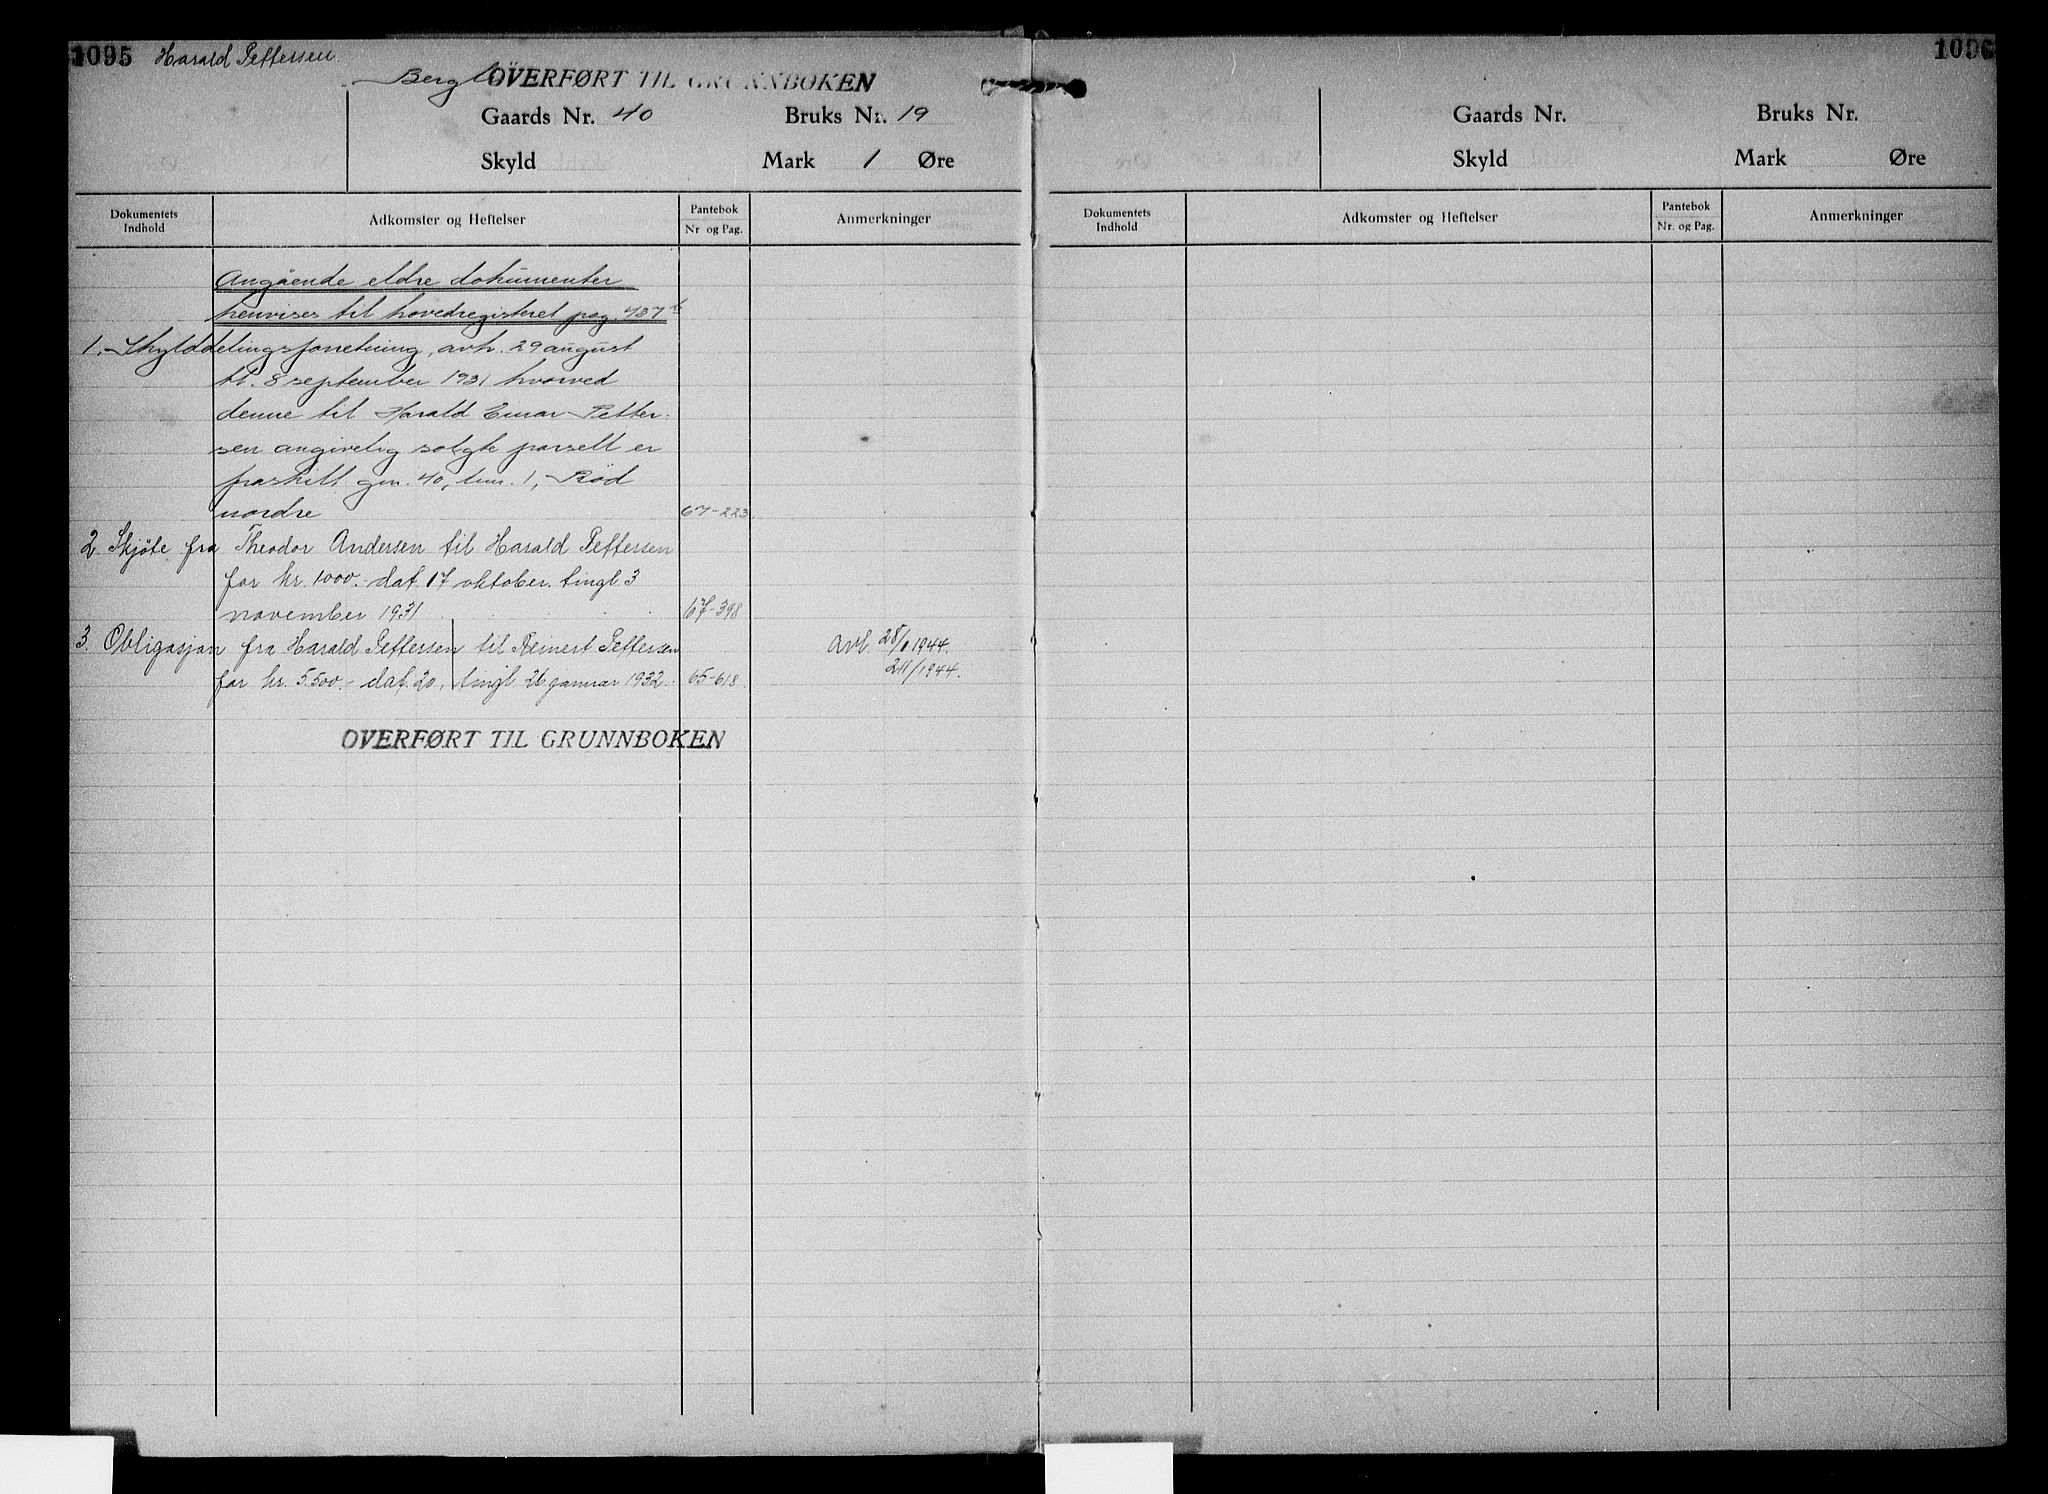 1095 Harald Pettersen
OVERFØRT TIL GRUNNBOKEN
Gaards Nr. 40 Bruks Nr. 19
Skyld Mark 1 Øre
Dokumentets Indhold Adkomster og Heftelser Pantebok Nr. og Pag. Anmerkninger
Angående eldre dokumenter
henvises til hovedregisteret pag. 437
1. Skylddelingsforretning, avh. 29 august
tl. 8 september 1931 hvorved
denne til Harald Einar Petter-
sen angivelig solgte parsell er
fraskilt gnr. 40, bnr. 1, Röd
nordre 67-223
2 Skjöte fra Theodor Andersen til Harald Pettersen
for kr. 1000.- dat. 17 oktober. tingl. 3
november 1931 67-398
3. Obligasjon fra Harald Pettersen til Reinert Pettersen avl. 28/1 1944.
for kr. 5500.- dat. 20, tingl. 26 januar 1932. 65-618 /1944.
OVERFØRT TIL GRUNNBOKEN
1096
Gaards Nr. Bruks Nr.
Skyld Mark Øre
Dokumentets Indhold Adkomster og Heftelser Pantebok Nr. og Pag. Anmerkninger